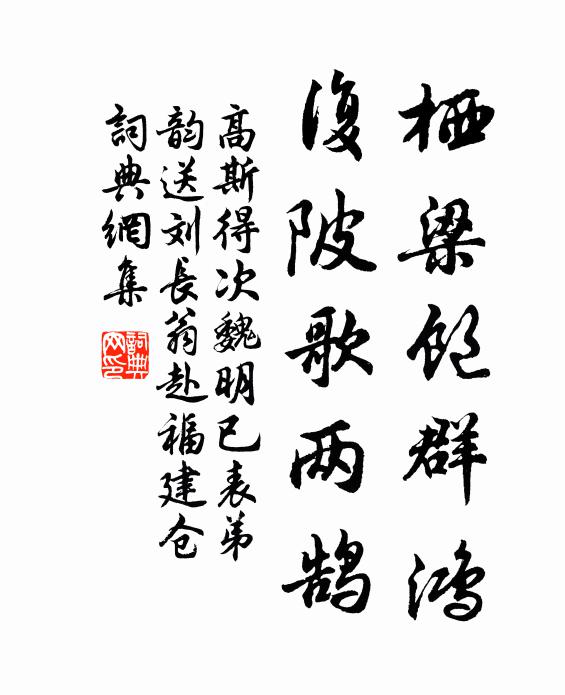 栖梁飽群鸿
復陂歌两鹄
高斯得次魏明已表弟
韵送刘長翁赴福建仓
詞典網集
詞典
网印